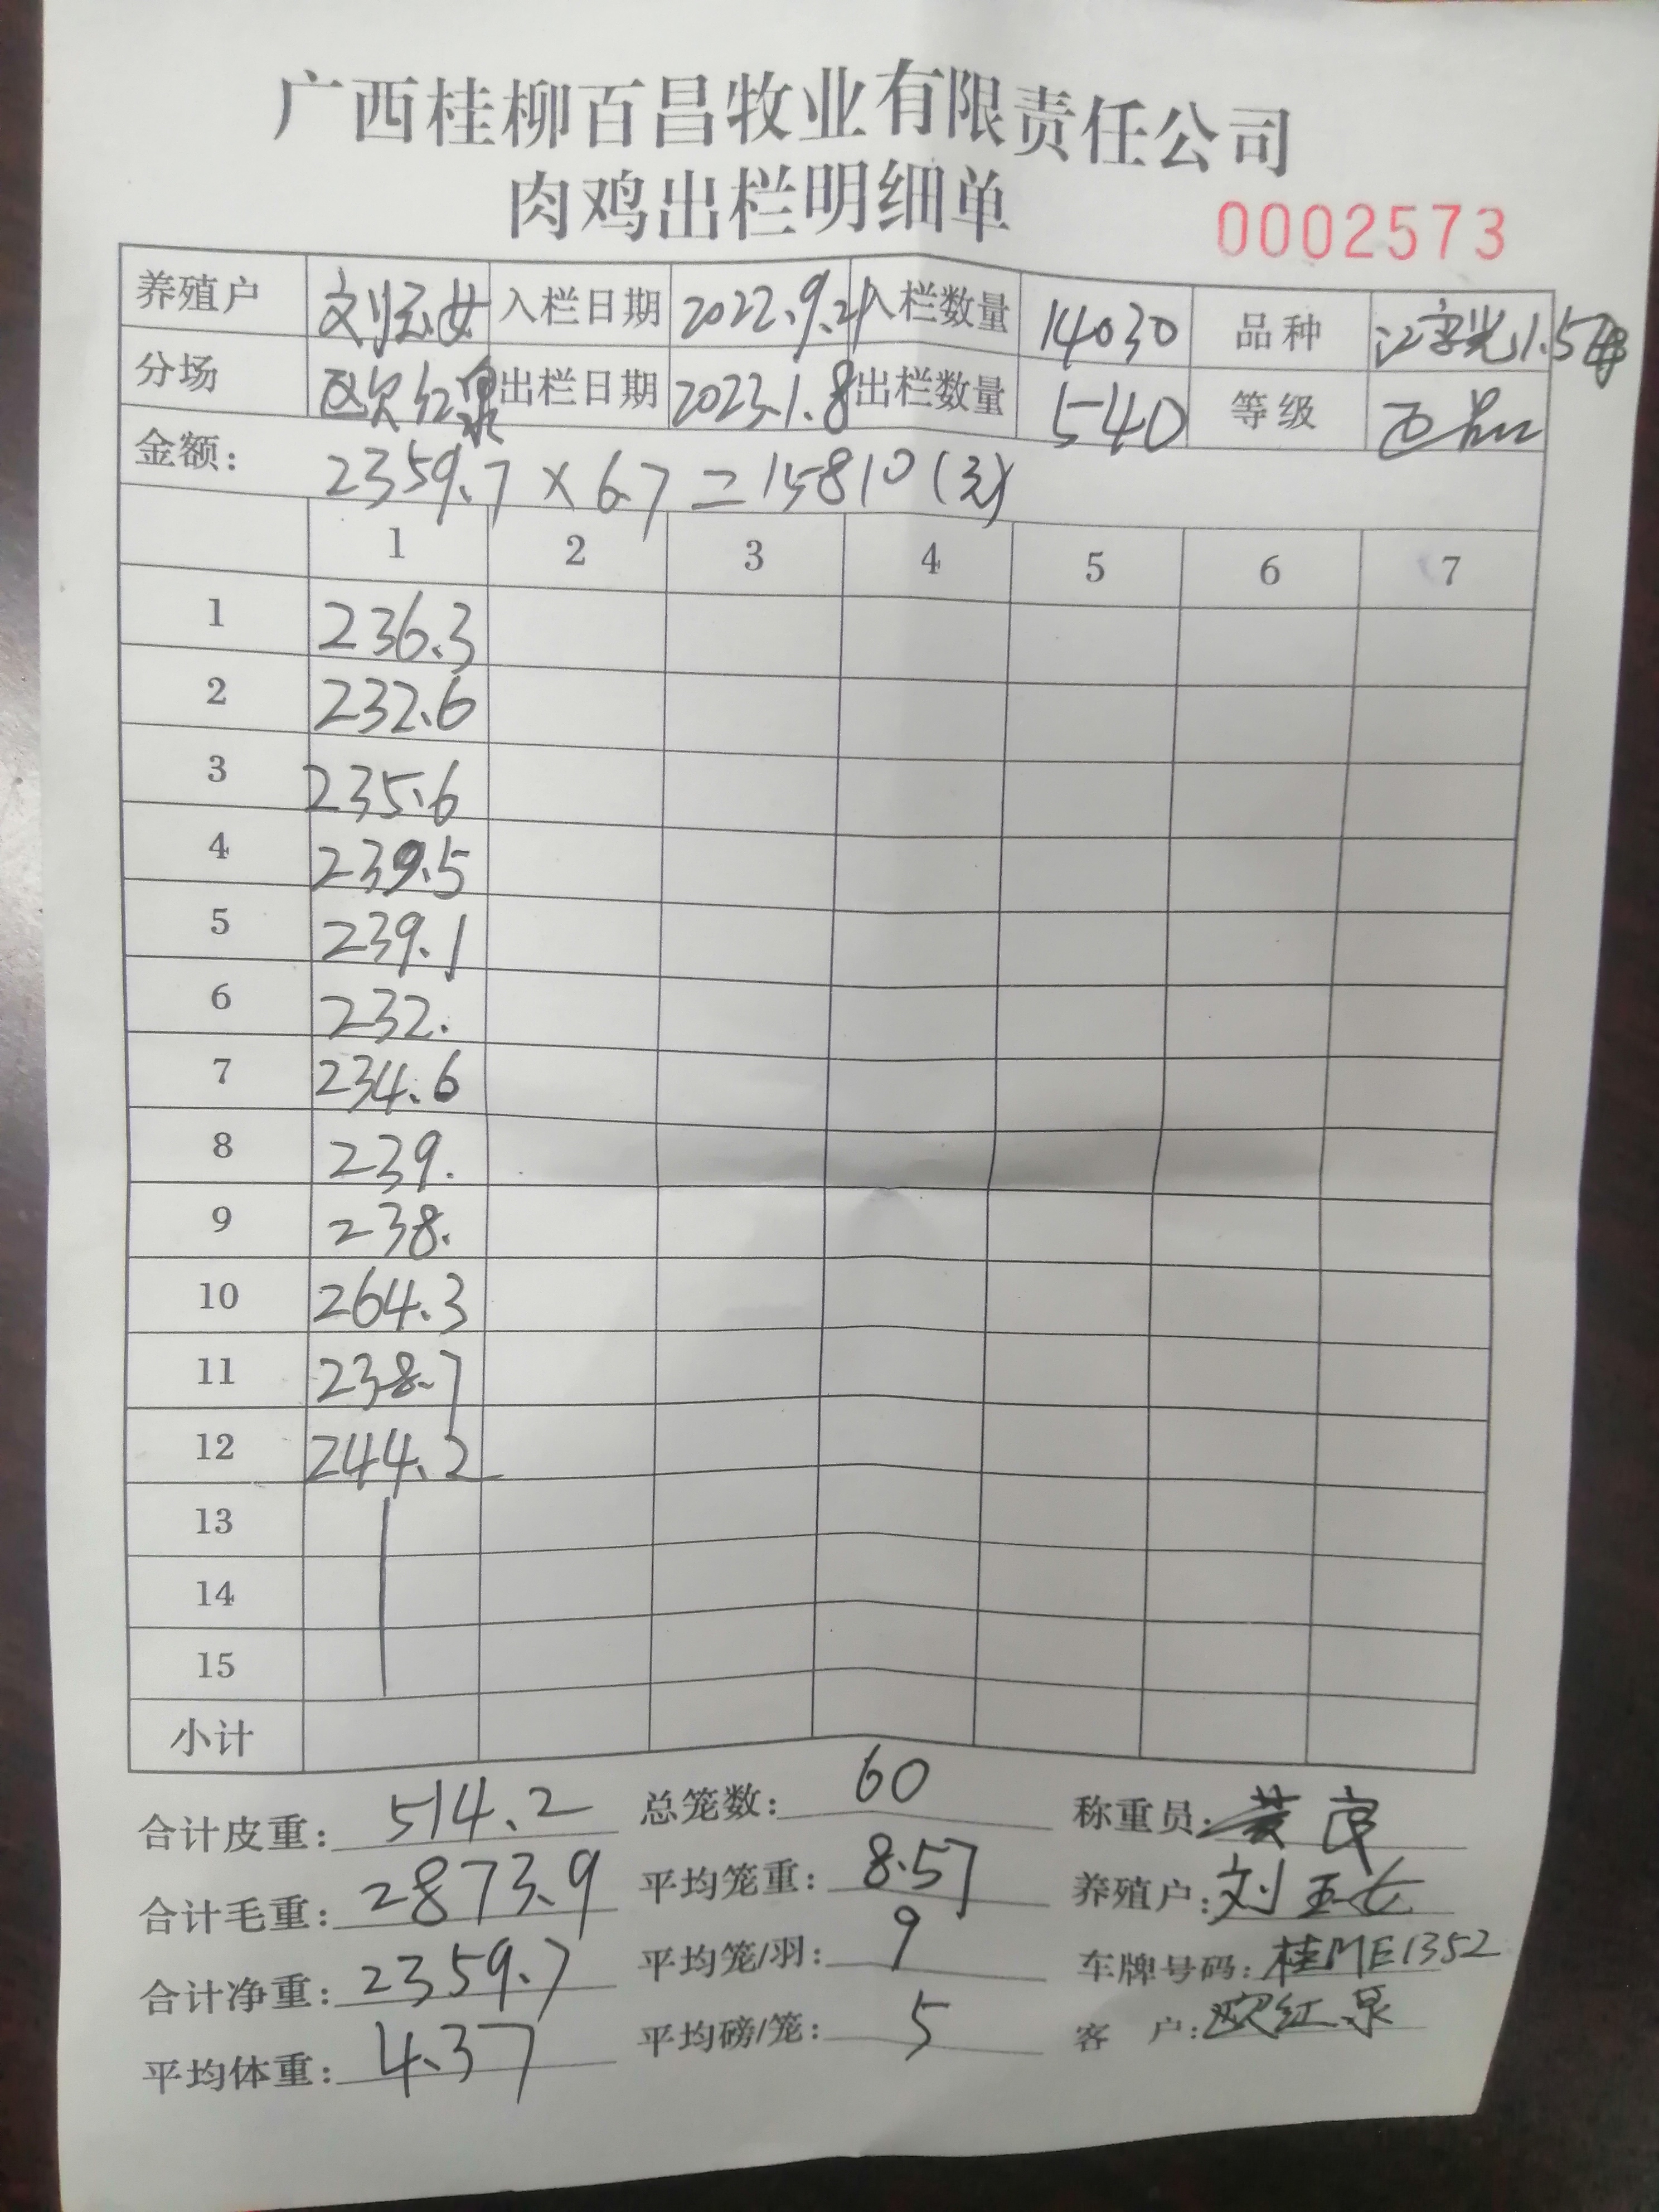 广西桂柳百昌牧业有限责任公司
肉鸡出栏明细单
0002573
养殖户 入栏日期 2022.9.21 入栏数量 14030 品种 1.5母
分场 欧红泉 出栏日期 2023.1.8 出栏数量 540 等级
金额: 2359.7 × 6.7 = 15810(元)
1 2 3 4 5 6 7
1 236.3
2 232.6
3 235.6
4 239.5
5 239.1
6 232.
7 234.6
8 239.
9 238.
10 264.3
11 238.7
12 244.2
13
14
15
小计
合计皮重: 514.2 总笼数: 60 称重员:
合计毛重: 2873.9 平均笼重: 8.57 养殖户: 刘玉女
合计净重: 2359.7 平均笼/羽: 9 车牌号码: 桂ME1352
平均体重: 4.37 平均磅/笼: 5 客户: 欧红泉